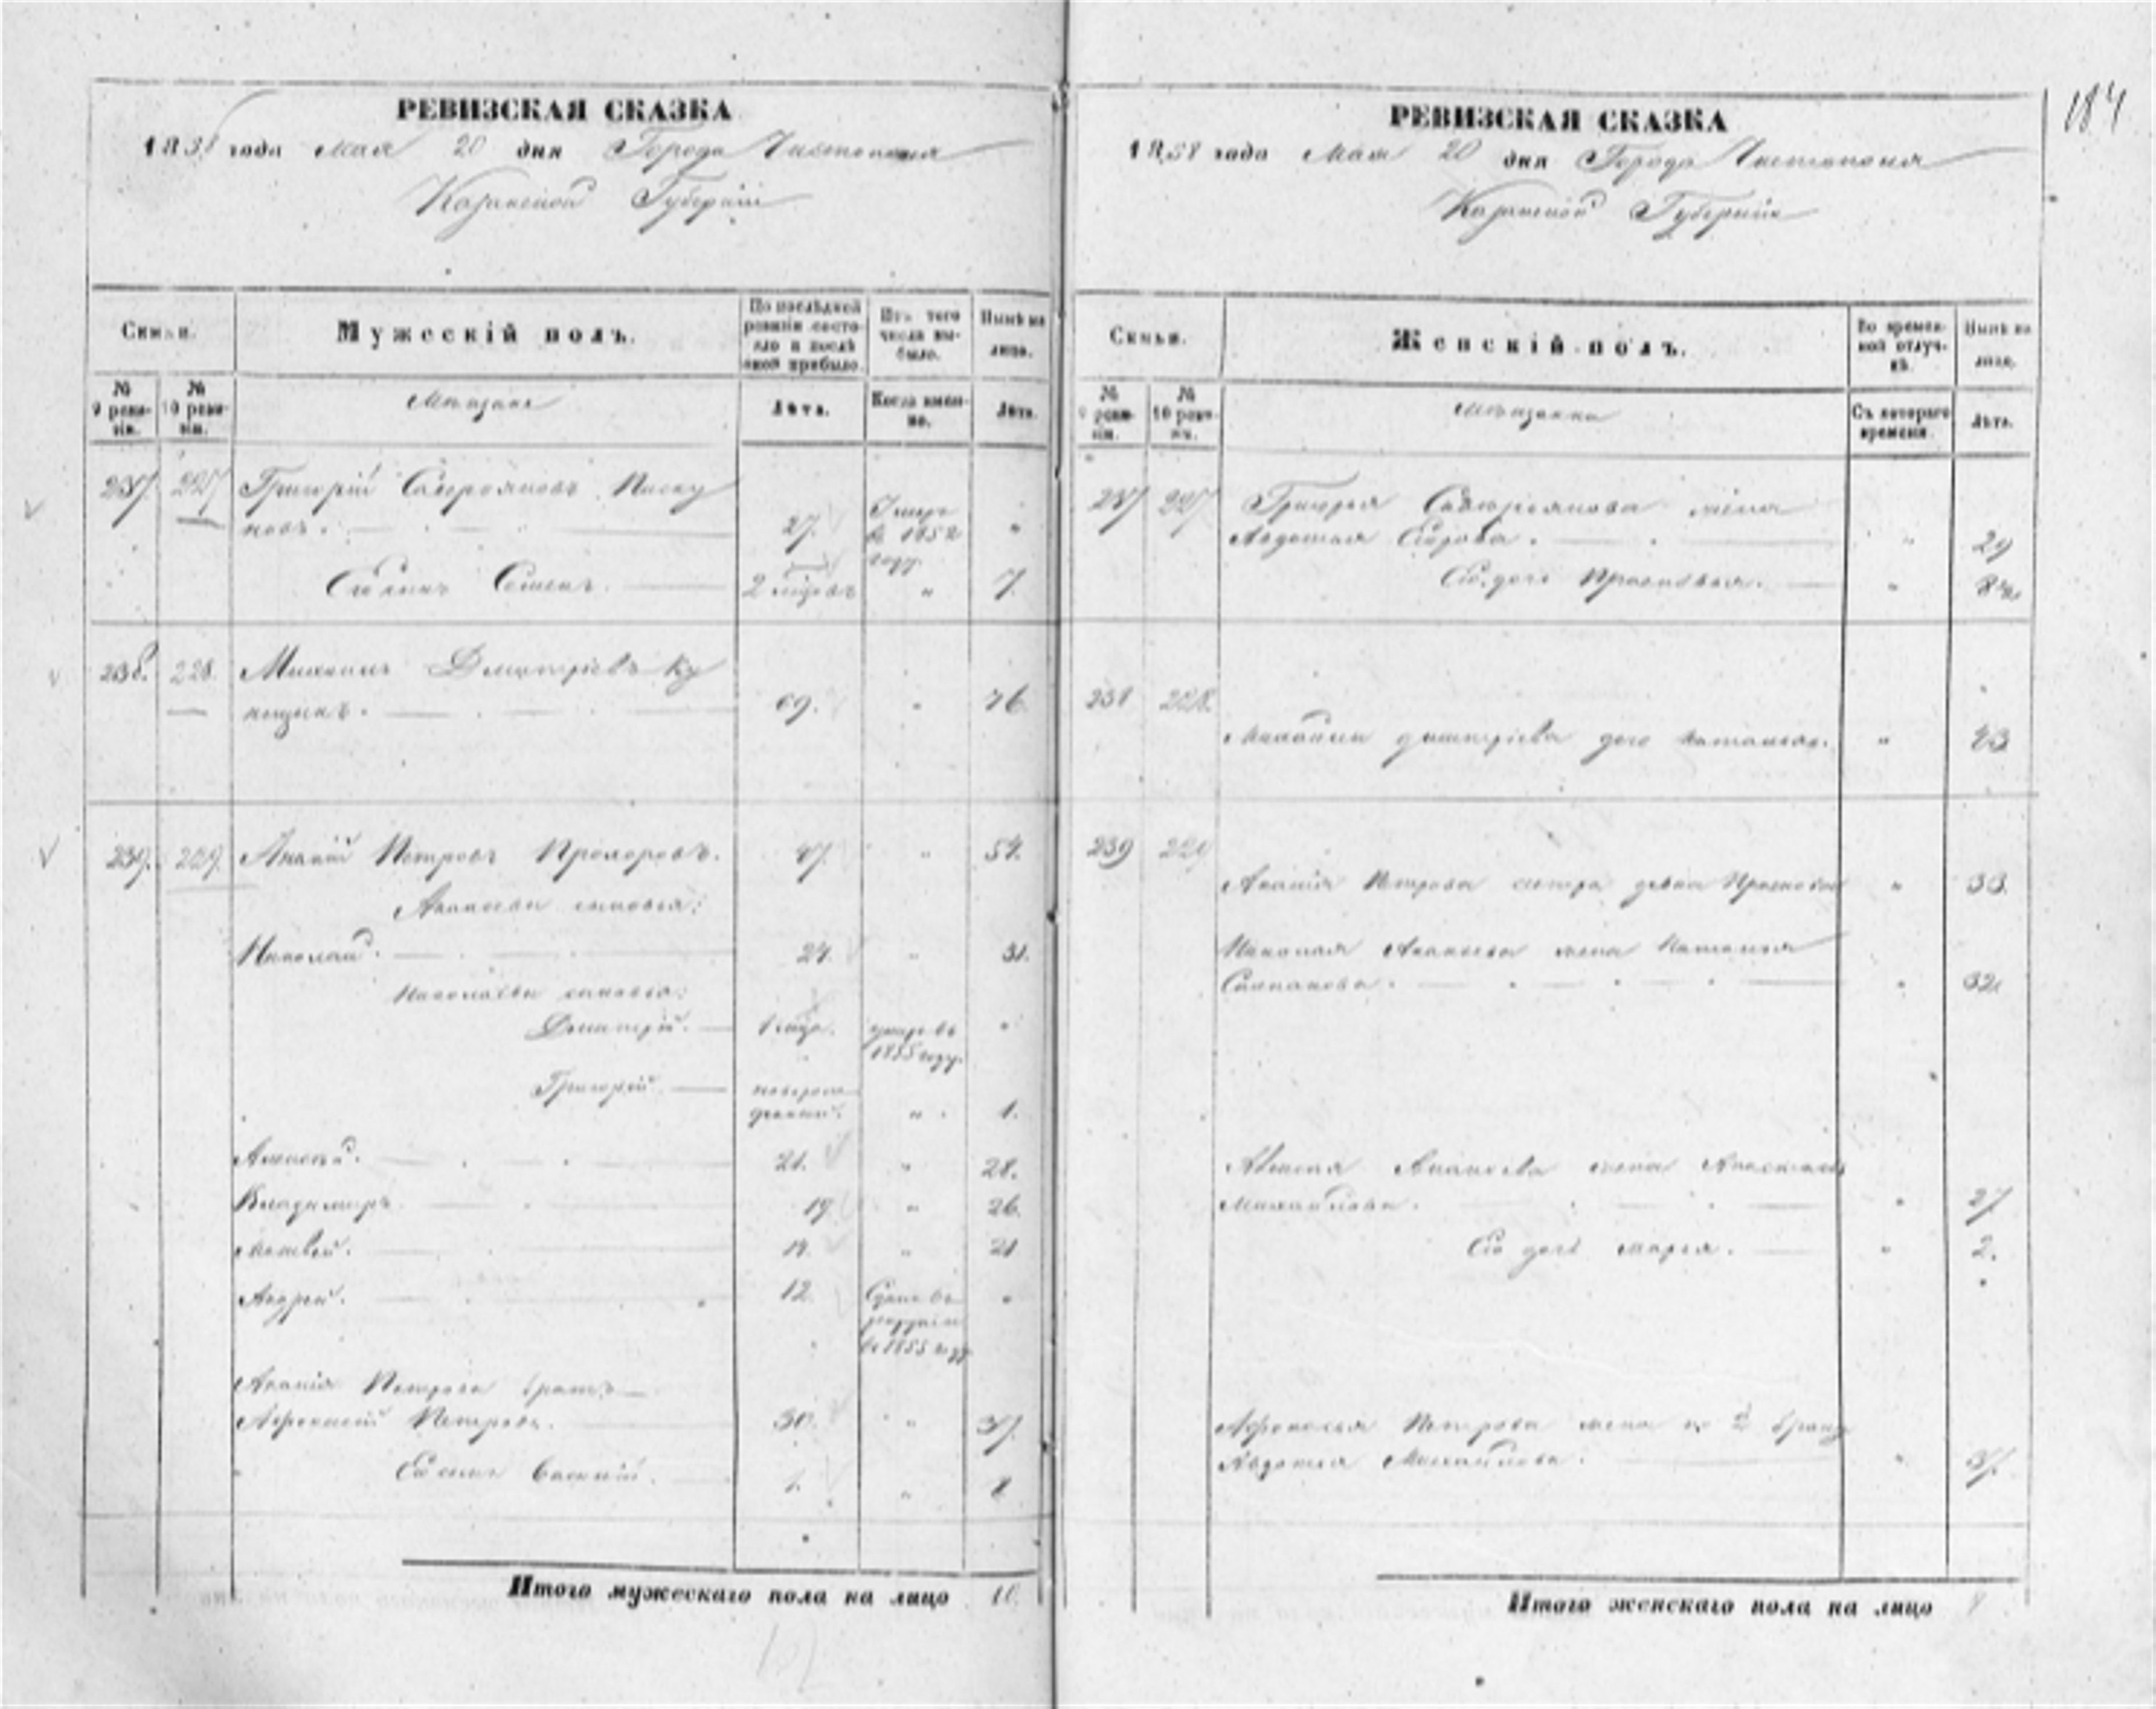 184
РЕВИЗСКАЯ СКАЗКА
1858 года Мая 20 дня Города Чистополя
Казанской Губерніи
Семьи.
Мужескій полъ.
По послѣдней ревизіи состояло и послѣ оной прибыло.
Изъ того числа выбыло.
Нынѣ на лицо.
№ 9 ревизіи.
№ 10 ревизіи.
Мѣщане
Лѣта.
Когда именно.
Лѣта.
237 227 Григорій
новъ. 27. Умеръ
въ 1852
году.
Его сынъ Семенъ. 2 мѣсяцъ " 7.
238. 228. Михаилъ Дмитріевъ Ку
69. " 76.
239. 229. Ананій Петровъ Прохоровъ. 47. " 54.
Ананьевы сыновья:
Николай. 24. " 31.
Николаевы сыновья:
Дмитрій. умеръ въ
1855 году.
Григорій. новорож
денный. " 1.
Алексѣй. 21. " 28.
Владимиръ. 19 " 26.
Матвей. 14. " 21
Андрей. 12. Сданъ въ
рекруты
въ 1855 году
Ананія Петрова братъ
Афонасій Петровъ. 30. " 37.
Его сынъ Василій. 1. " 8
Итого мужескаго пола на лицо 10.
РЕВИЗСКАЯ СКАЗКА
1858 года Мая 20 дня Города Чистополя
Казанской Губерніи
Семьи.
Женскій полъ.
Во временной отлучкѣ.
Нынѣ на лицо.
№ 9 ревизіи.
№ 10 ревизіи.
Мѣщанки
Съ котораго времени.
Лѣта.
237 227 Григорья жена
Авдотья " 29
Его дочь Прасковья. "
238 228.
Михайлы Дмитріева дочь Наталья. " 43
239 229
Ананія Петрова сестра девка Прасковья " 33.
Николая Ананьева жена Наталья
Степанова. " 32
Алексея Ананьева жена
Михайлова. " 27
Его дочь Марья. " 2.
Афонасья Петрова жена по 2 браку
Авдотья Михайлова. " 37.
Итого женскаго пола на лицо